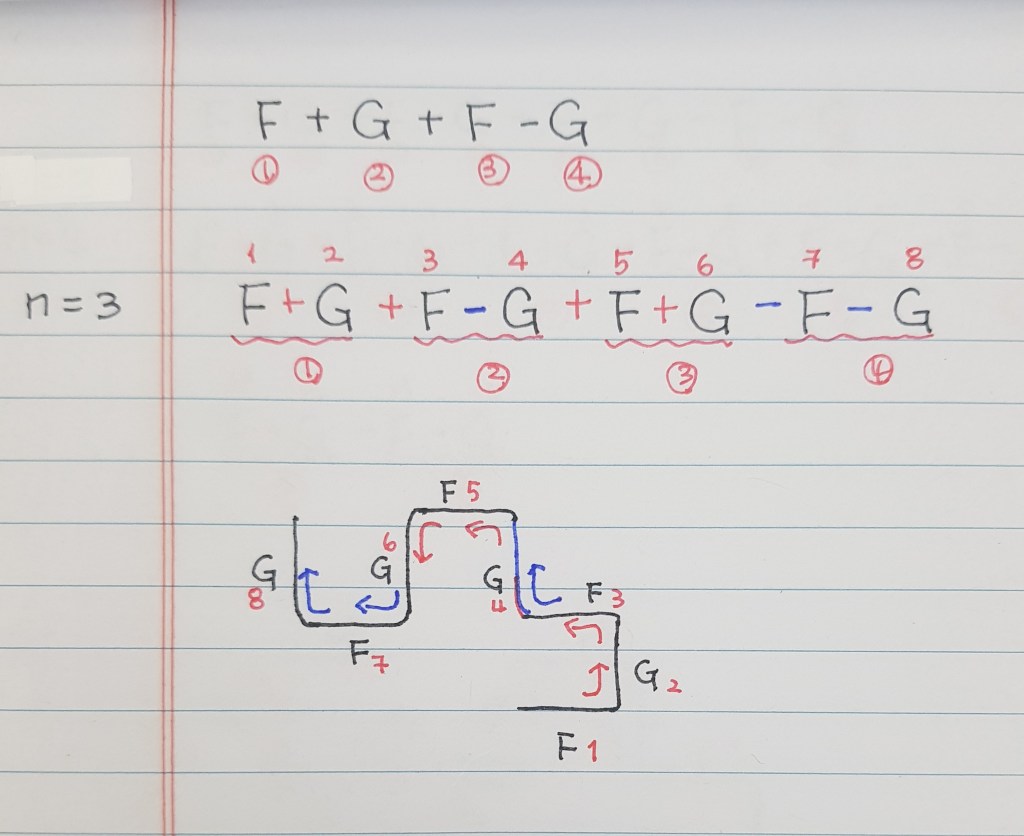 F + G + F - G
① ② ③ ④
1 2 3 4 5 6 7 8
n = 3 F + G + F - G + F + G - F - G
① ② ③ ④
F 5
G 8 G 6 G 4 F 3
F 7 G 2
F 1